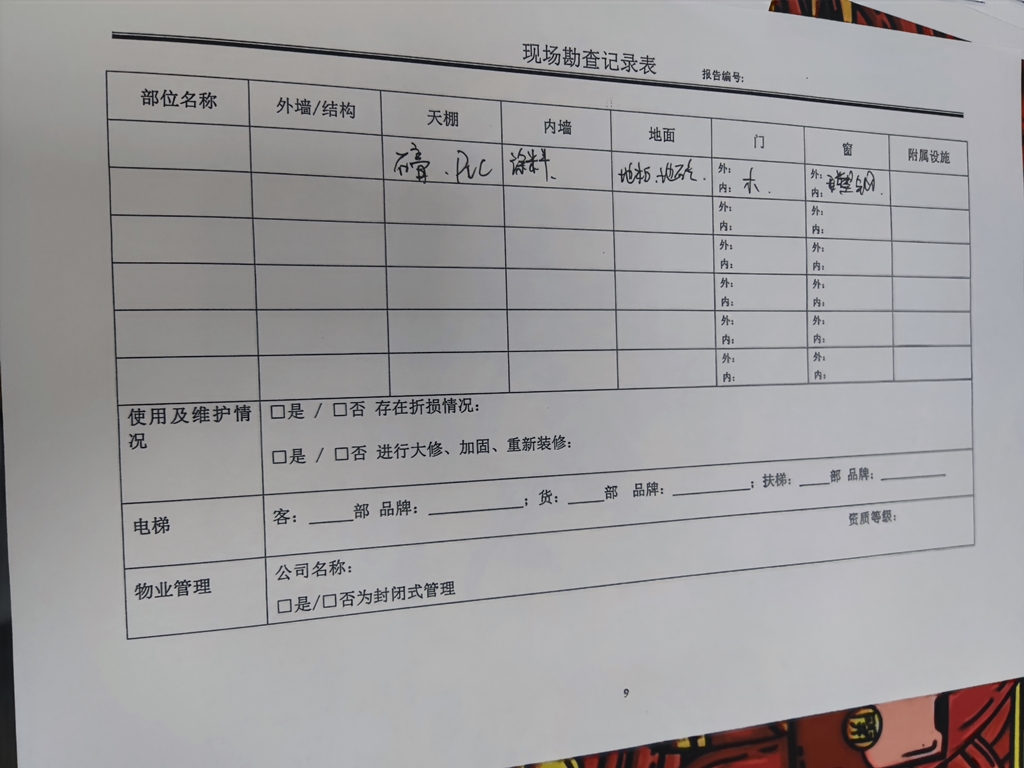 现场勘查记录表
报告编号:
部位名称 外墙/结构 天棚 内墙 地面 门 窗 附属设施
石膏、PVC 涂料、 地板、地石仑. 外: 内: 木. 外: 内: 塑钢.
外: 外:
内: 内:
外: 外:
内: 内:
外: 外:
内: 内:
外: 外:
内: 内:
外: 外:
内: 内:
使用及维护情况
□是 / □否 存在折损情况:
□是 / □否 进行大修、加固、重新装修:
电梯 客: 部 品牌: ; 货: 部 品牌: ; 扶梯: 部 品牌:
物业管理 公司名称: 资质等级:
□是/□否为封闭式管理
9